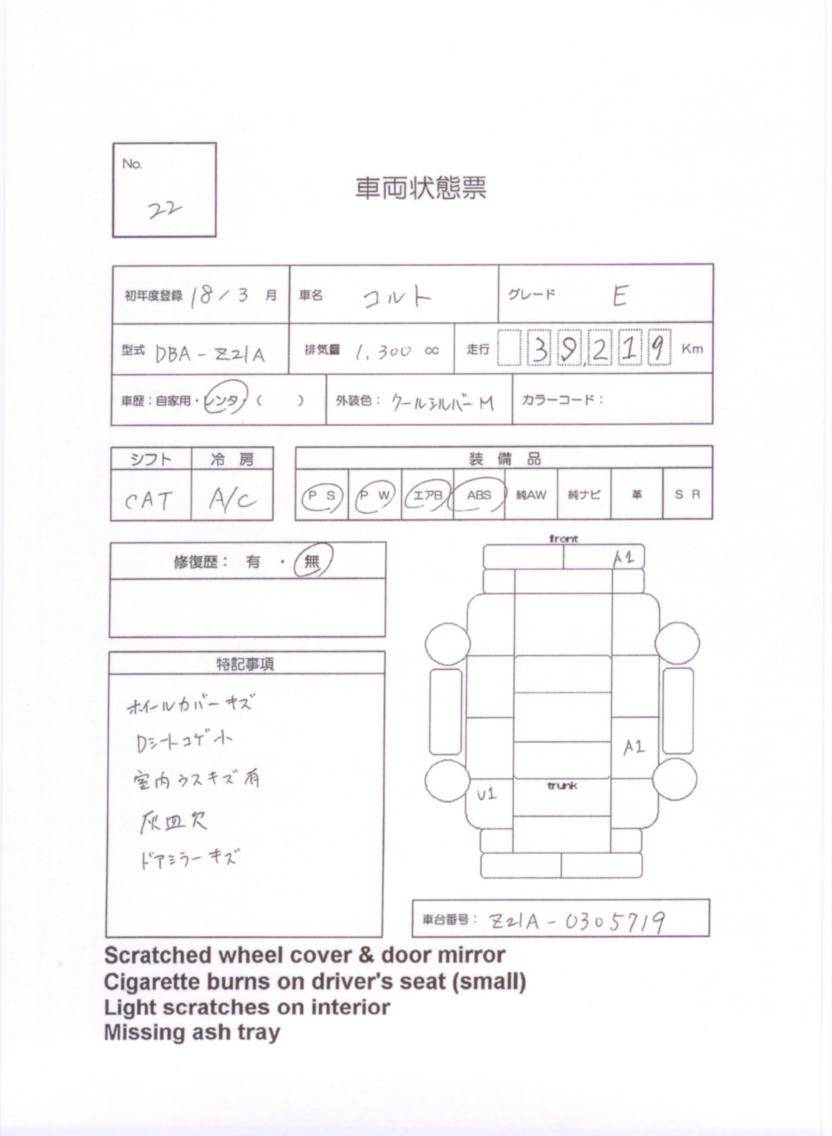 No.
22
車両状態票
初年度登録 18/3 月 車名 コルト グレード E
型式 DBA-Z21A 排気量 1,300 cc 走行 39,219 Km
車歴：自家用・レンタ・（ ） 外装色：クールシルバーM カラーコード：
シフト 冷房 装備品
CAT A/C PS PW エアB ABS 純AW 純ナビ 革 SR
修復歴： 有 ・ 無
特記事項
ホイールカバーキズ
Dシートコゲ小
室内ウスキズ有
灰皿欠
ドアミラーキズ
front
A1
A1
trunk
U1
車台番号：Z21A-0305719
Scratched wheel cover & door mirror
Cigarette burns on driver's seat (small)
Light scratches on interior
Missing ash tray